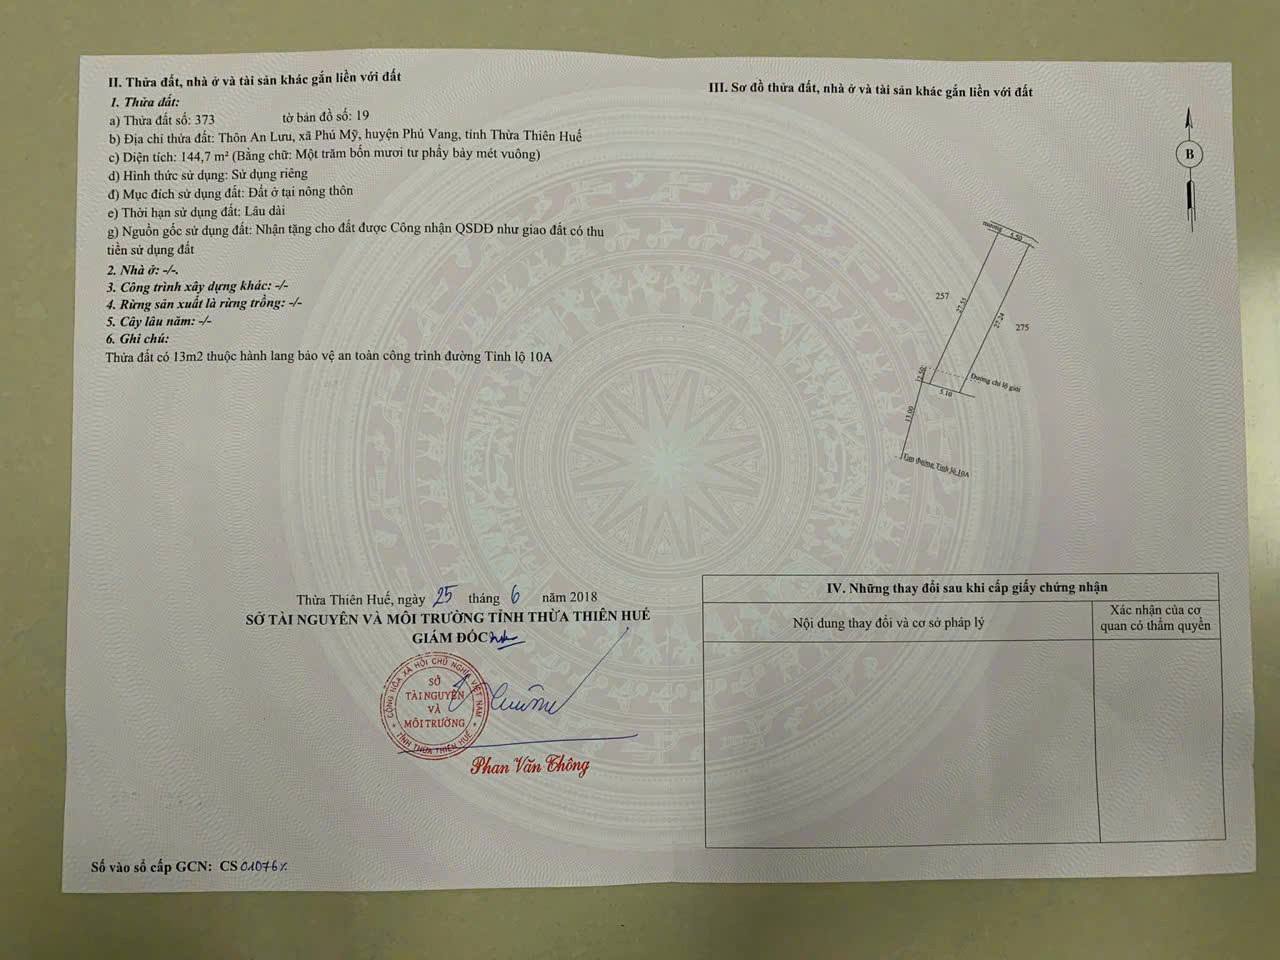 II. Thửa đất, nhà ở và tài sản khác gắn liền với đất
1. Thửa đất:
a) Thửa đất số: 373 tờ bản đồ số: 19
b) Địa chỉ thửa đất: Thôn An Lưu, xã Phú Mỹ, huyện Phú Vang, tỉnh Thừa Thiên Huế
c) Diện tích: 144,7 m² (Bằng chữ: Một trăm bốn mươi tư phẩy bảy mét vuông)
d) Hình thức sử dụng: Sử dụng riêng
đ) Mục đích sử dụng đất: Đất ở tại nông thôn
e) Thời hạn sử dụng đất: Lâu dài
g) Nguồn gốc sử dụng đất: Nhận tặng cho đất được Công nhận QSDĐ như giao đất có thu
tiền sử dụng đất
2. Nhà ở: -/-.
3. Công trình xây dựng khác: -/-
4. Rừng sản xuất là rừng trồng: -/-
5. Cây lâu năm: -/-
6. Ghi chú:
Thửa đất có 13m2 thuộc hành lang bảo vệ an toàn công trình đường Tỉnh lộ 10A
Thừa Thiên Huế, ngày 25 tháng 6 năm 2018
SỞ TÀI NGUYÊN VÀ MÔI TRƯỜNG TỈNH THỪA THIÊN HUẾ
GIÁM ĐỐC
CỘNG HÒA XÃ HỘI CHỦ NGHĨA VIỆT NAM
SỞ
TÀI NGUYÊN
VÀ
MÔI TRƯỜNG
TỈNH THỪA THIÊN HUẾ
Phan Văn Thông
Số vào sổ cấp GCN: CS
III. Sơ đồ thửa đất, nhà ở và tài sản khác gắn liền với đất
B
mương 5.50
257
27.51
27.24
275
12.50
Đường chỉ lộ giới
5.10
13.00
Tim đường Tỉnh lộ 10A
IV. Những thay đổi sau khi cấp giấy chứng nhận
Nội dung thay đổi và cơ sở pháp lý
Xác nhận của cơ
quan có thẩm quyền